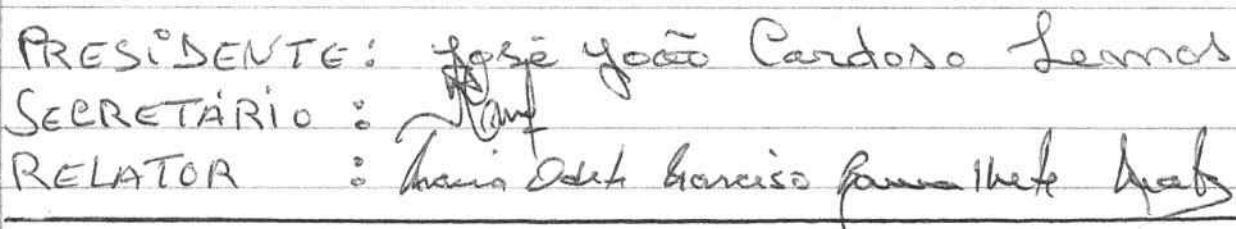 PRESIDENTE: José João Cardoso Lemos
SECRETÁRIO :
RELATOR : Maria Odete Narciso